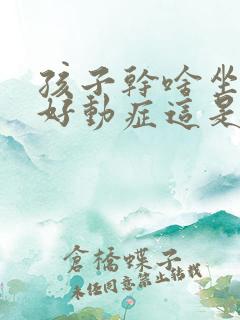 孩子幹啥坐
好動症這是
倉橋蝶子
未经同意禁止转载